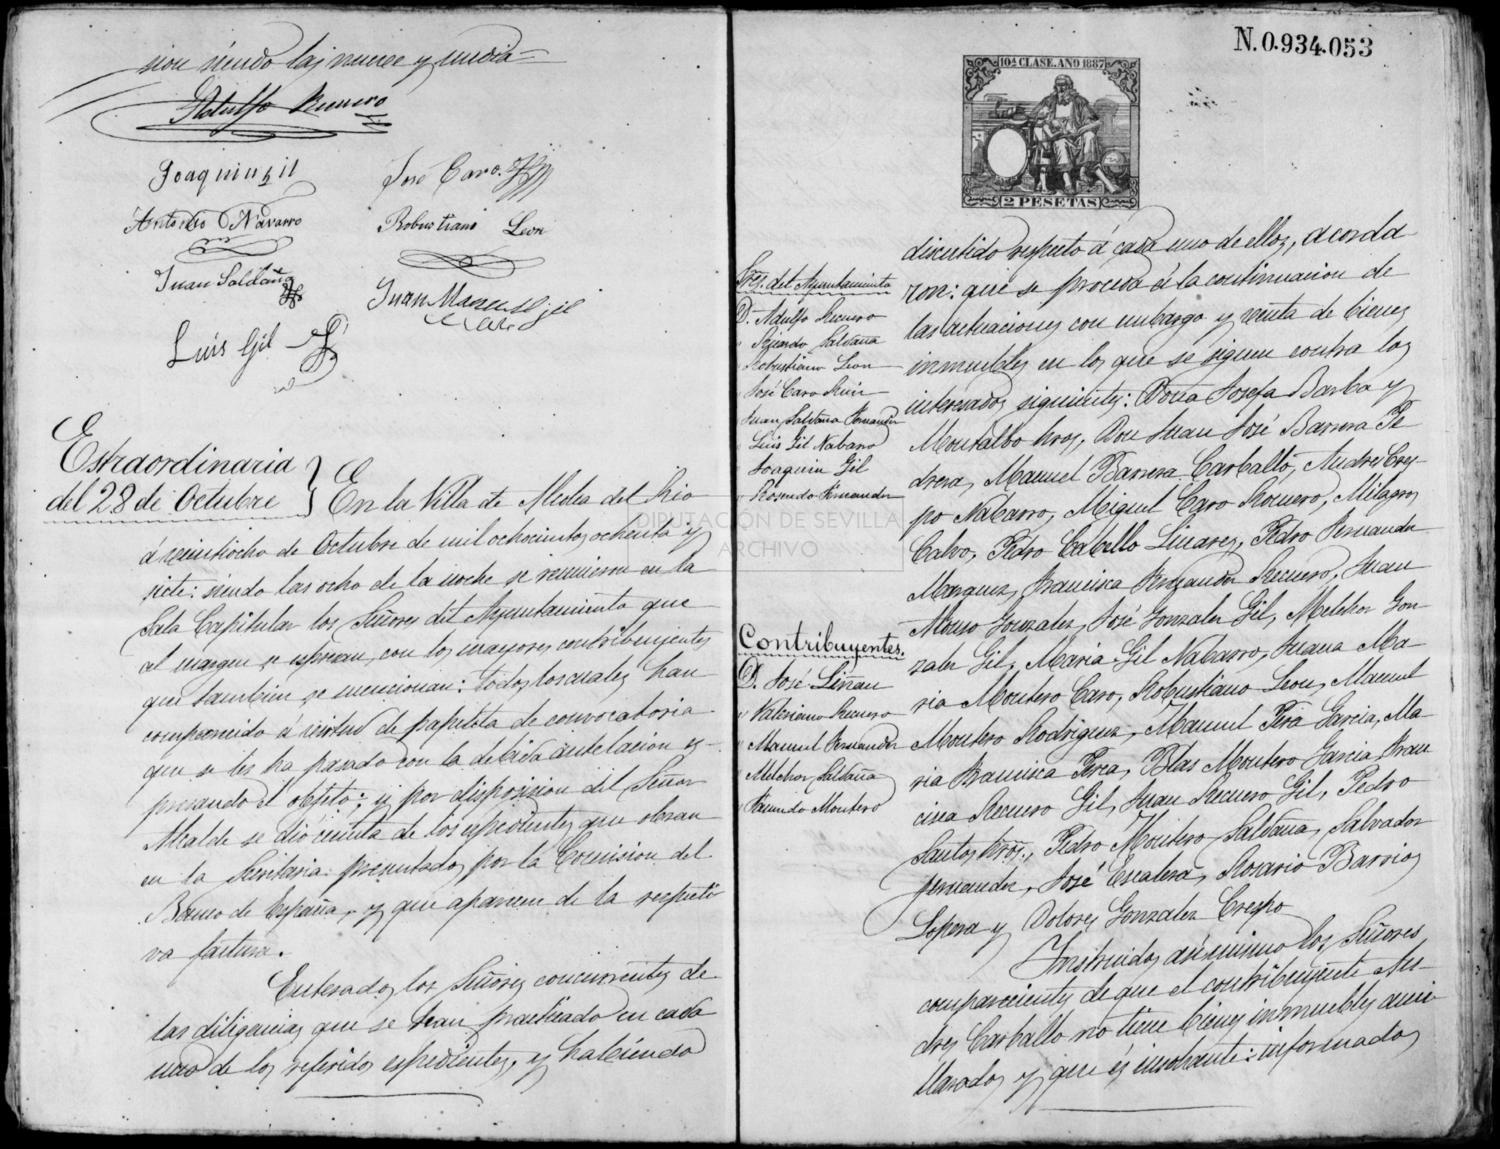 sion siendo las nueve y media=
Adolfo Recuero
Joaquin Gil
José Caro
Antonio Navarro
Robustiano Leon
Juan Saldaña
Juan Manuel Gil
Luis Gil
Estraordinaria
del 28 de Octubre
En la Villa de Alcolea del Rio
á veintiocho de Octubre de mil ochocientos ochenta y
siete: siendo las ocho de la noche se reunieron en la
Sala Capitular los Señores del Ayuntamiento que
al margen se espresan, con los mayores contribuyentes
que tambien se mencionan: todos los cuales han
comparecido á virtud de papeleta de convocatoria
que se les ha pasado con la debida antelacion es-
presando el objeto; y por disposicion del Señor
Alcalde se dio cuenta de los espedientes que obran
en la Secretaria presentados por la Comision del
Banco de España, y que aparecen de la respecti
va factura.
Enterados los Señores concurrentes de
las diligencias que se han practicado en cada
uno de los referidos espedientes, y habiendo
N.0.934.053
10ª CLASE. AÑO 1887
2 PESETAS
DIPUTACIÓN DE SEVILLA
ARCHIVO
Sres. del Ayuntamiento
D. Adolfo Recuero
" Saldaña
" Robustiano Leon
" José Caro Ruiz
" Juan Saldaña Fernandez
" Luis Gil Nabarro
" Joaquin Gil
" Rosendo Fernandez
Contribuyentes.
D. José Liñan
" Valeriano Recuero
" Manuel Fernandez
" Melchor Saldaña
" Facundo Montero
discutido respecto á cada uno de ellos, acorda
ron: que se proceda á la continuacion de
las actuaciones con embargo y venta de bienes
inmuebles en los que se siguen contra los
interesados siguientes: Doña Josefa Barba y
Montalbo hros, Don Juan José Barrera Pe
drera, Manuel Barrera Carballo, Andres Cres-
po Nabarro, Miguel Caro Recuero, Milagros
Calvo, Pedro Caballo Linares, Pedro Fernandez
Marquez, Francisca Fernandez Recuero, Juan
Alonso Gonzalez, José Gonzalez Gil, Melchor Gon
zalez Gil, Maria Gil Nabarro, Juana Ma-
ria Montero Caro, Robustiano Leon, Manuel
Montero Rodriguez, Manuel Perea Garcia, Ma-
ria Francisca Perea, Blas Montero Garcia, Fran
cisca Recuero Gil, Juan Recuero Gil, Pedro
Santos hros., Pedro Montero Saldaña, Salvador
Fernandez, José Escalera, Rosario Barrios
Lopera y Dolores Gonzalez Crespo
Instruidos asimismo los Señores
comparecientes de que el contribuyente An-
dres Carballo no tiene bienes inmuebles ami
llarados y que es insolvente: informados